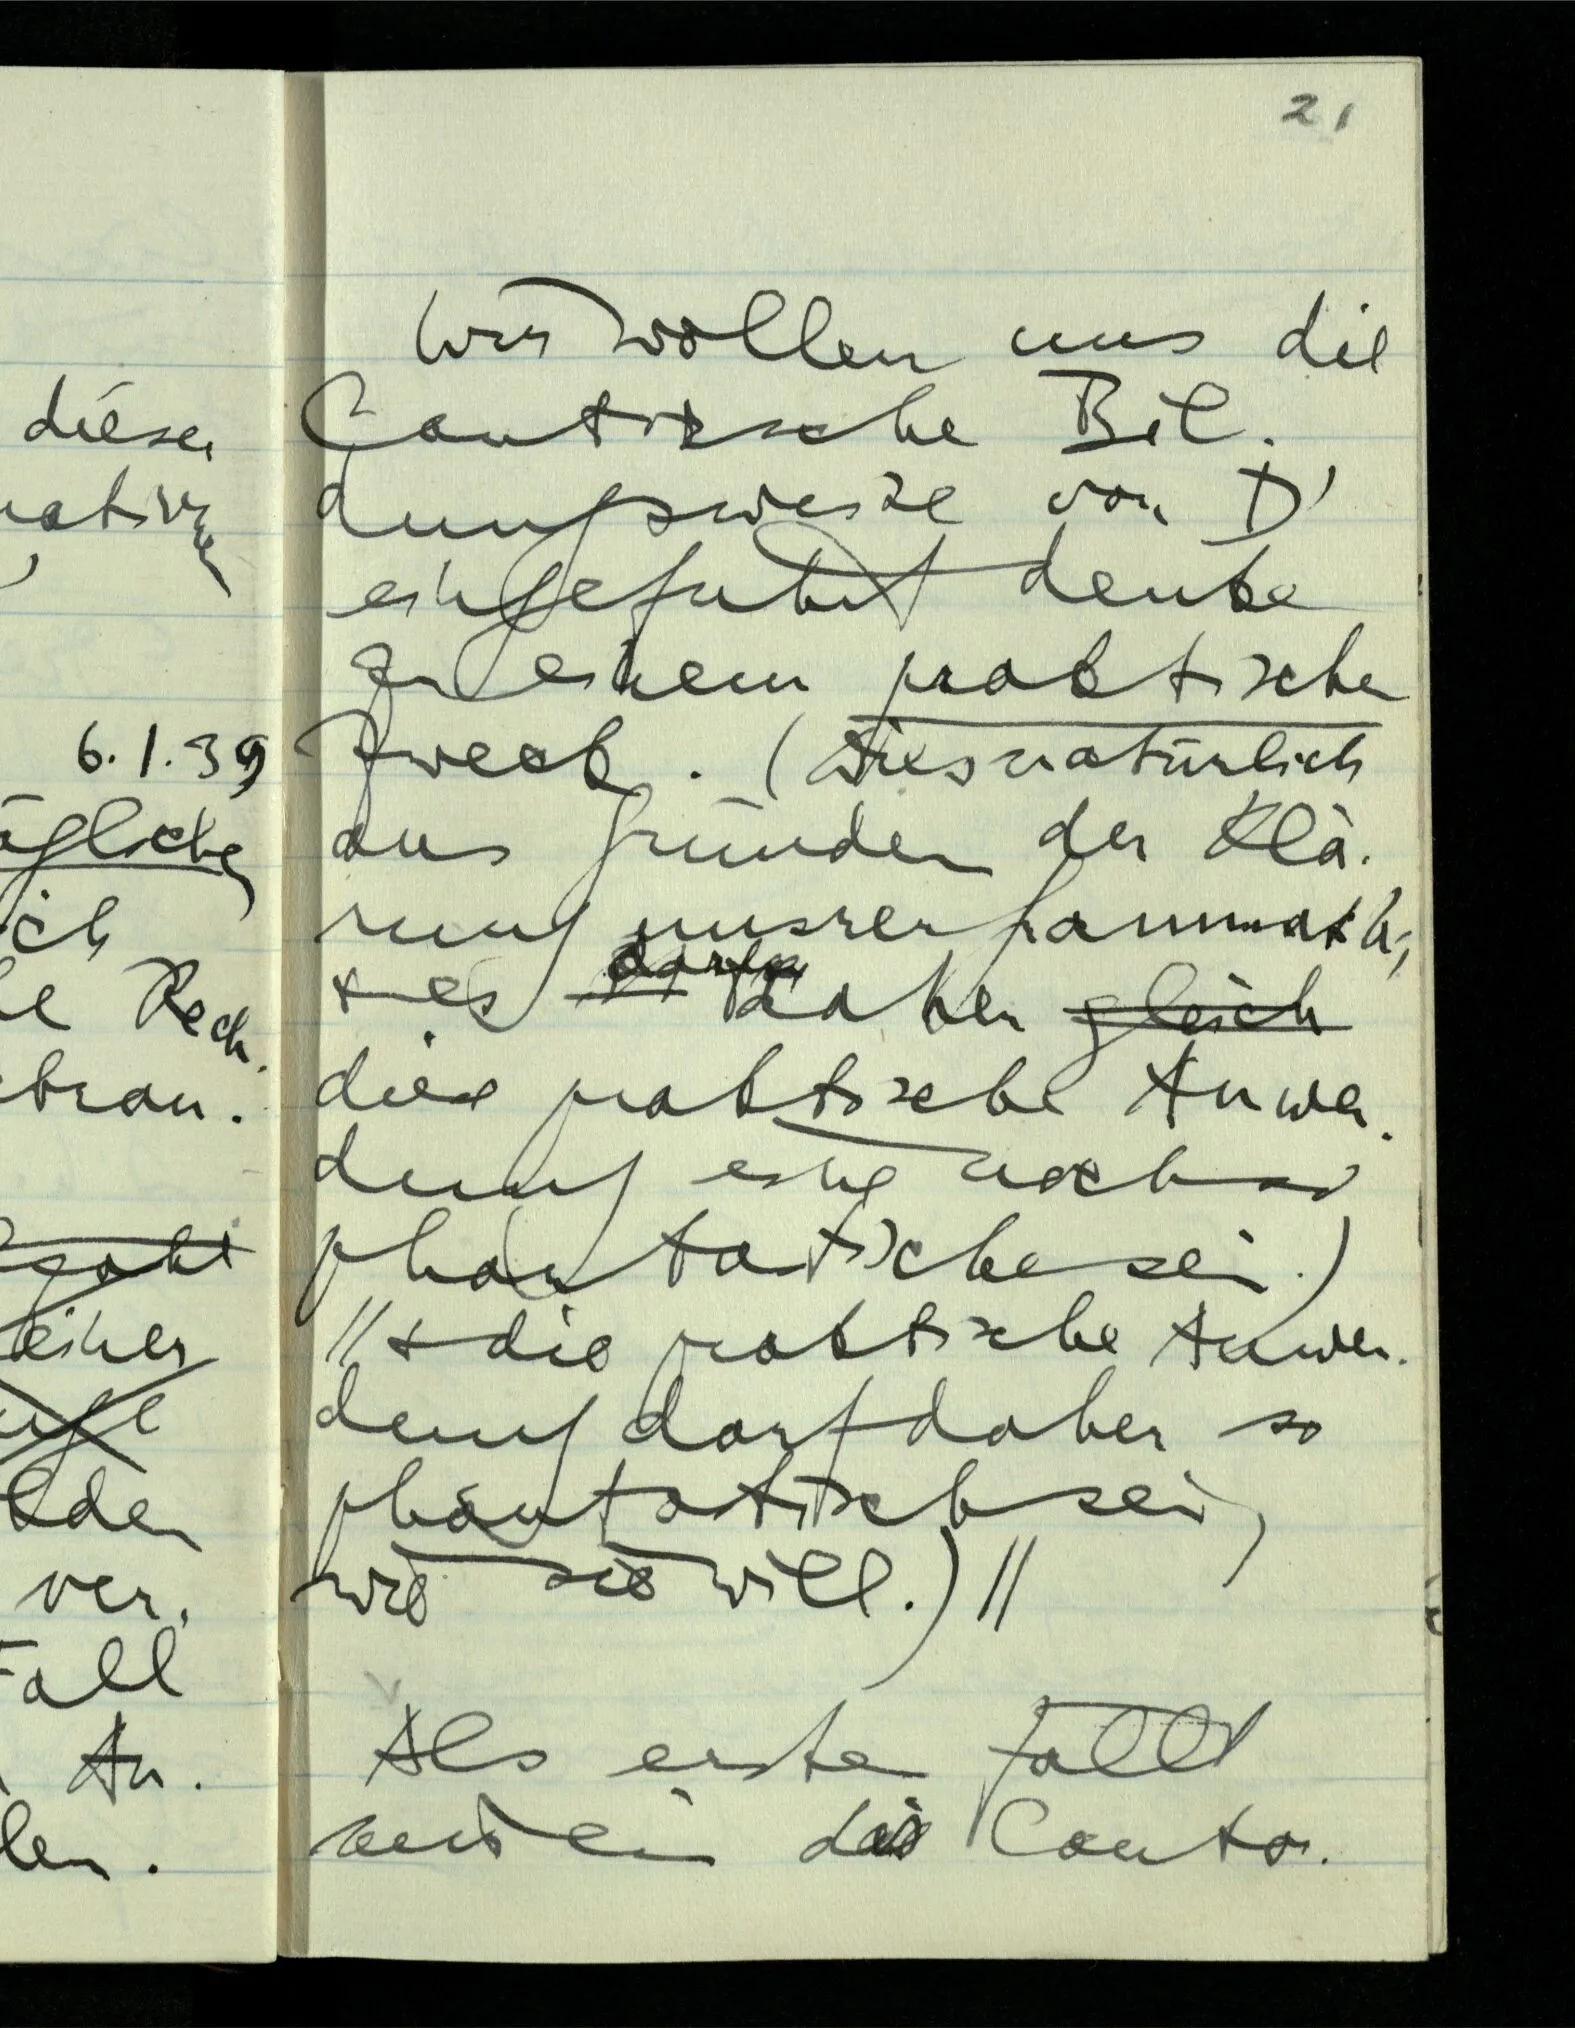 dieser
6.1.39
ögliche
ich
Rech.
bran.
einer
lden
ver.
Fall
An.
len.
21
Wir wollen uns die
Cantorsche Bil-
dungsweise von D'
eingeführt denken
zu einem praktischen
Zweck. (Dies natürlich
aus Gründen der Klä-
rung unsrer Grammatik;
+ es darf daher gleich
diese praktische Anwen-
dung eine noch so
phantastische sein.)
// + die praktische Anwen-
dung darf daher so
phantastisch sein,
wie sie will.) //
Als erstes fällt
einem das Cantor-